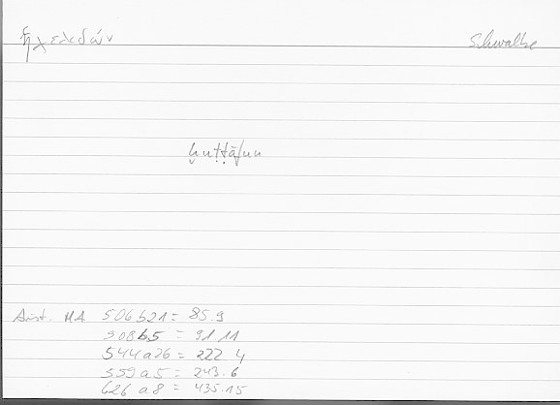 ἡ χελιδών Schwalbe
ḫuṭṭāfun
Arist. HA 506b21 = 85.9
508b5 = 91 11
544a26 = 222 4
559a5 = 243.6
626a8 = 435.15